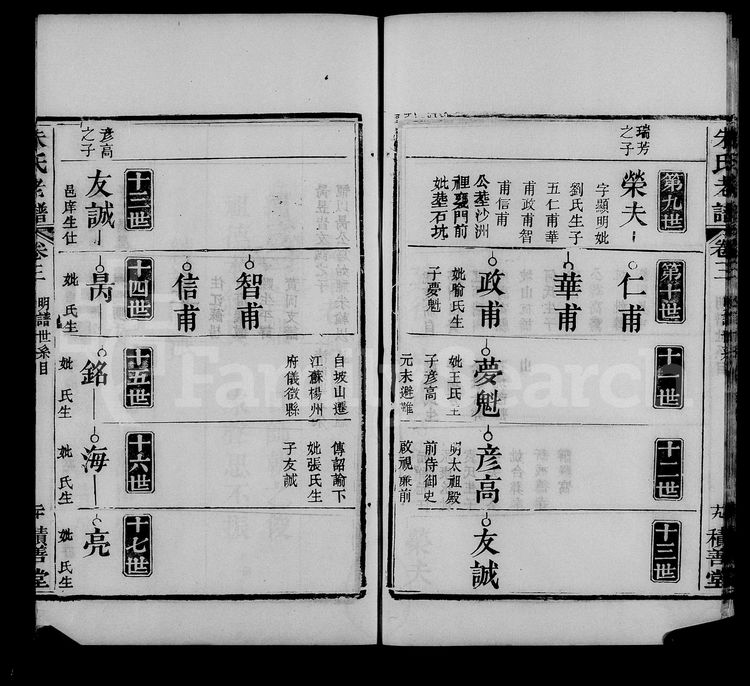 朱氏老譜
卷三
明譜世系目
九
積善堂
第九世
第十世
十一世
十二世
十三世
瑞芳
之子
榮夫
字顯明妣
劉氏生子
五仁甫華
甫政甫智
甫信甫
公塟沙洲
裡甕門前
妣塟石坑
仁甫
華甫
政甫
妣喻氏生
子夢魁
夢魁
妣王氏生
子彦高
元末避難
彦高
明太祖殿
前侍御史
啟視蒹前
友誠
自坡山遷
江蘇楊州
府儀徵縣
傳韶諭下
妣張氏生
子友誠
智甫
信甫
十三世
十四世
十五世
十六世
十七世
彦高
之子
友誠
邑庠生仕
昺
妣 氏生
銘
妣 氏生
海
妣 氏生
亮
妣 氏生
朱氏老譜
卷三
明譜世系目
積善堂
FamilySearch